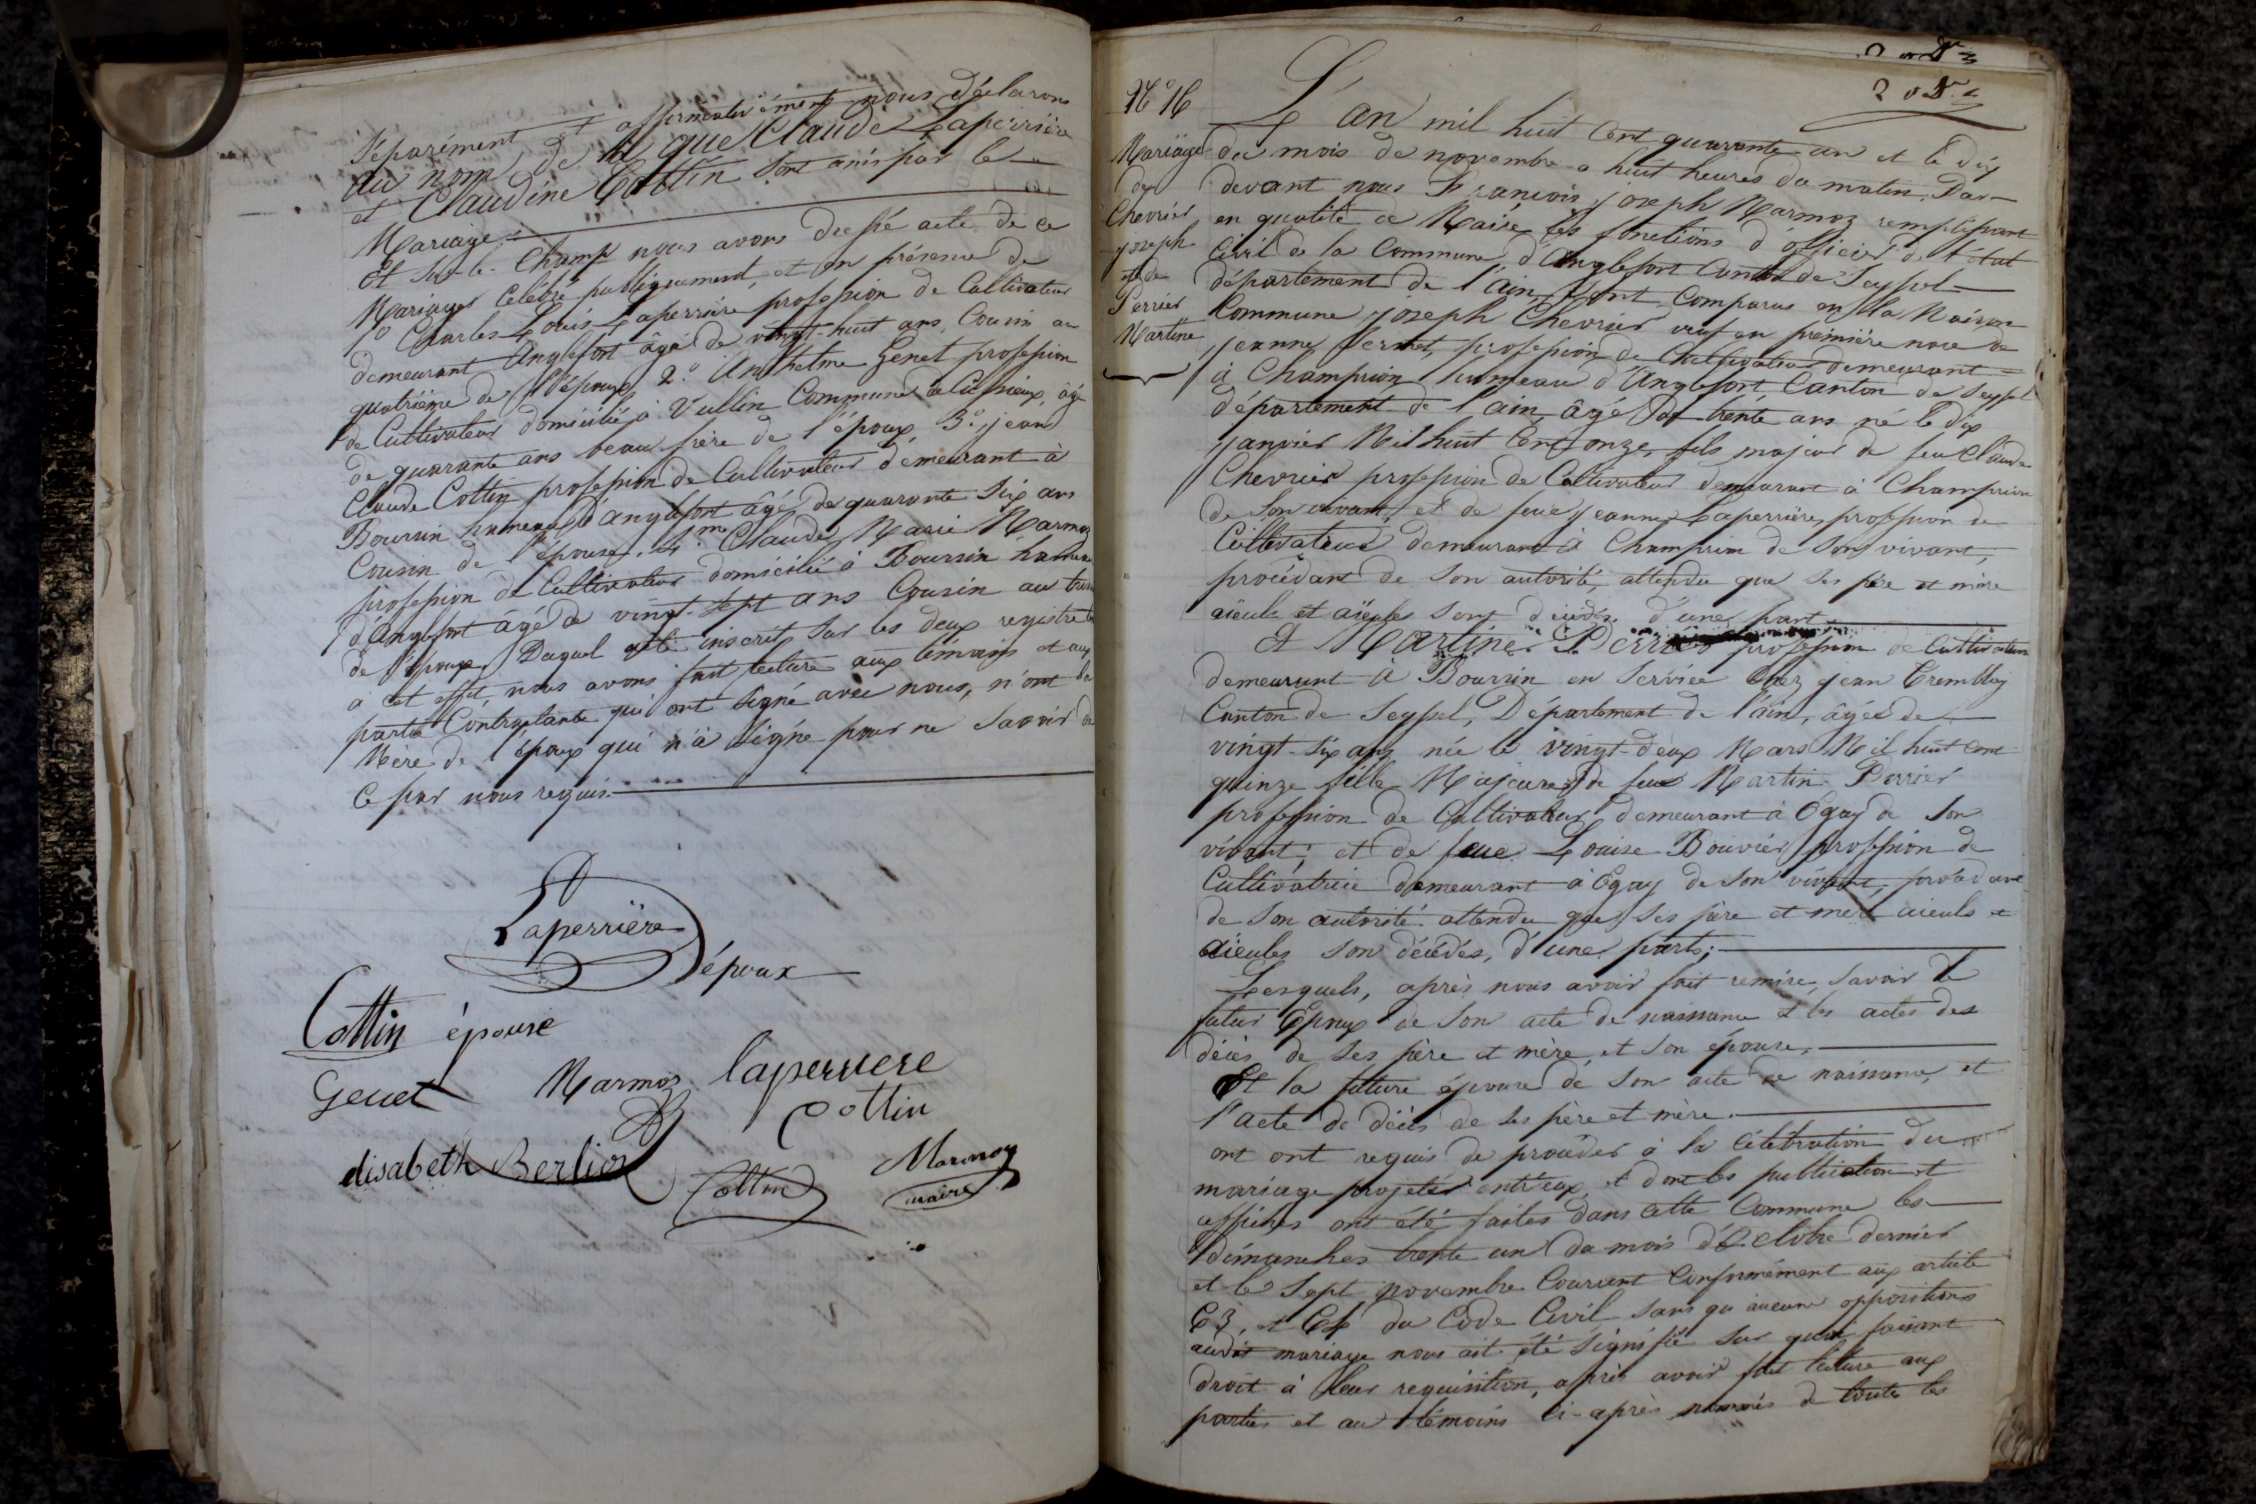 Séparément et affirmativement nous déclarons
au nom de la que Claude Laperrière
et Claudine Cottin sont unis par le
Mariage.
Et sur-le-Champ nous avons dressé acte de ce
Mariage Célébré publiquement, et en présence de
1º Charles Louis Laperrière profession de Cultivateur
demeurant Anglefort âgé de vingt-huit ans, Cousin au
quatrième de l'époux, 2.º Anthelme Genet profession
de Cultivateur domicilié à Vullin Commune de âgé
de quarante ans beau frère de l'époux, 3.º jean
Claude Cottin profession de Cultivateur demeurant à
Boursin hameau d'anglefort âgé de quarante Six ans
Cousin de l'épouse. 4.me Claude Marie Marmoz
profession de Cultivateur domicilié à Boursin hameau
d'Anglefort âgé de vingt-sept ans Cousin au
de l'époux, Duquel acte inscrit sur les deux registres
a cet effet, nous avons fait lecture aux témoins et aux
partie Contractante qui ont signé avec nous, n'ont la
Mère de l'époux qui n'a signé pour ne savoir de
Ce par nous requis.
Laperrière
époux
Cottin épouse
Genet Marmoz laperriere
Cottin
elisabeth Berlioz Cottin Marmoz
maire
Nº 16
Mariage
de
Chevrier
joseph
et de
Perrier
Martine
L'an mil huit Cent quarante-un et le dix
du mois de novembre a huit heures du matin, Par-
devant nous François joseph Marmoz remplissant
en qualité de Maire les fonctions d'officier de l'état
Civil de la Commune d'Anglefort Canton de Seyssel
département de l'ain, Sont Comparus en la Maison
Commune, joseph Chevrier veuf en première noce de
jeanne Permet, profession de Cultivateur demeurant
à Champrion hameau d'Anglefort Canton de Seyssel
département de l'ain, âgé de trente ans né le dix
janvier Mil huit Cent onze, fils majeur de feu Claude
Chevrier profession de Cultivateur demeurant à Champrion
de Son vivant, et de feue jeanne Laperrière, profession de
Cultivatrice demeurant à Champrion de Son vivant,
procédant de Son autorité, attendu que Ses père et mère
aieuls et aïeules Sont décédés d'une part.
Et Martine Perrier profession de Cultivatrice
demeurant à Boursin en Service Chez jean Tremblay
Canton de Seyssel, Département de l'ain, âgée de
vingt-Six ans née le vingt-deux Mars Mil huit Cent
quinze fille Majeure de feu Martin Perrier
profession de Cultivateur demeurant à Ogay de Son
vivant; et de feue Louise Bouvier profession de
Cultivatrice demeurant à Ogay de Son vivant, procédant
de Son autorité attendu que Ses père et mère aieuls et
aïeules Son décédés, d'une part;
Lesquels, après nous avoir fait remise, savoir le
futur Epoux de Son acte de naissance et les actes des
décès de Ses père et mère, et Son épouse,
Et la future épouse de Son acte de naissance, et
l'acte de décès de ses père et mère.
ont ont requis de procéder à la Célébration du
mariage projeter entr'eux, et dont les publication et
affiches ont été faites dans cette Commune les
dimanches trente un du mois d'Octobre dernier
et le Sept novembre Courrent Conformément aux article
63, et 64 du Code Civil sans qu'aucune oppositions
audit mariage nous ait été Signifié sur quoi faisant
droit à leur requisition, après avoir fait lecture aux
parties et au témoins Ci-après nommés de toute les